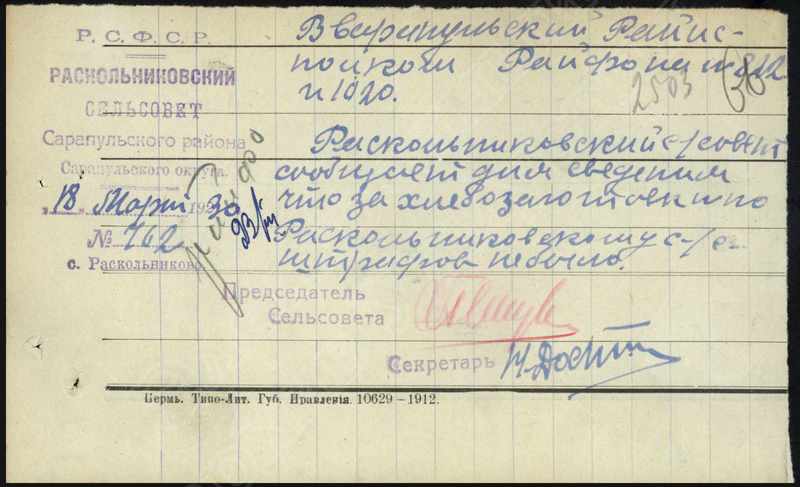 Р. С. Ф. С. Р.
РАСКОЛЬНИКОВСКИЙ
СЕЛЬСОВЕТ
Сарапульского района
Сарапульского округа.
"18" Март 1930
№ 762
с. Раскольниково
В Сарапульский Райис-
полком Райфо на № 812
и 1020.
2503
Раскольниковский с/совет
сообщает для сведения
что за хлебозаготовки по
Раскольниковскому с-/с
штрафов не было.
Председатель
Сельсовета
Секретарь
Пермь. Типо-Лит. Губ. Правленія. 10629—1912.